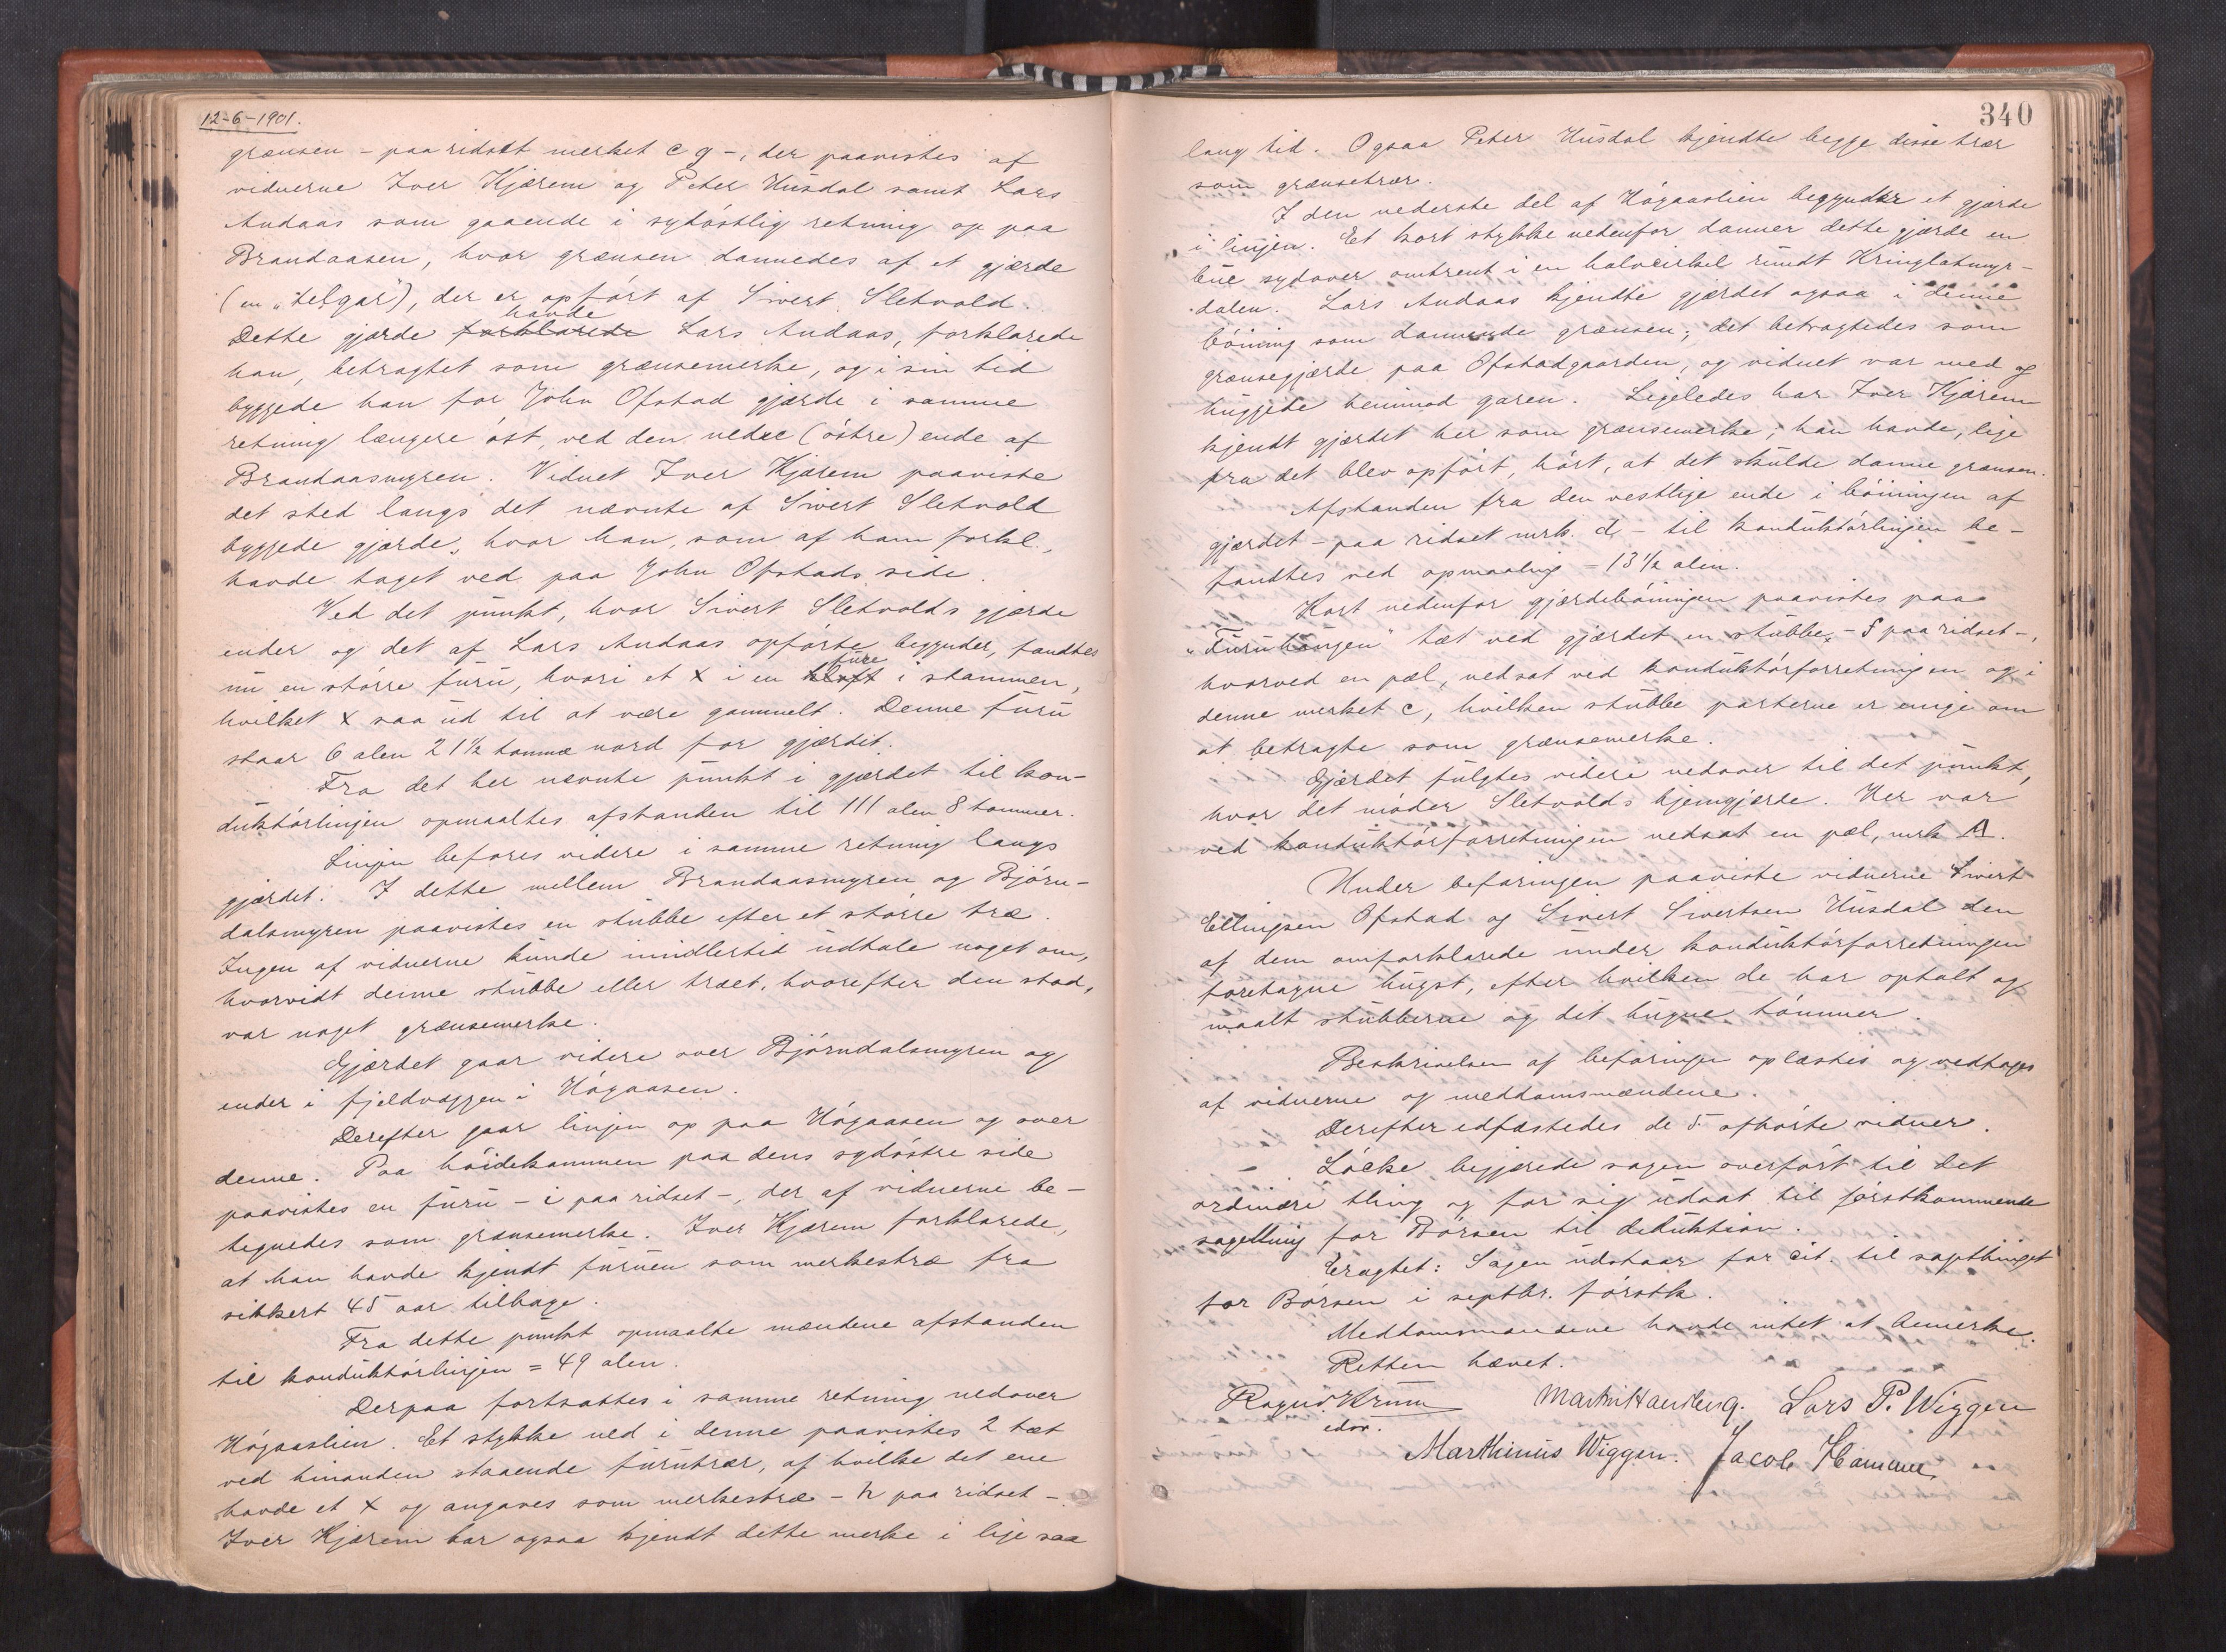 12-6-1901.
grænsen - paa ridset merket c g -, der paavistes af
vidnerne Iver Kjærem og Peter Husdal samt Lars
Andaas som gaaende i sydöstlig retning op paa
Brandaasen, hvor grænsen dannedes af et gjærde
(en "telgar"), der er opfört af Sivert Sletvold.
havde
Dette gjærde forklarede Lars Andaas, forklarede
han, betragtet som grænsemerke, og i sin tid
byggede han for John Ofstad gjærde i samme
retning længere öst, ved den nedre (östre) ende af
Brandaasmyren. Vidnet Iver Kjærem paaviste
det sted langs det nævnte af Sivert Sletvold
byggede gjærde, hvor han, som af ham forkl.,
havde taget ved paa John Ofstads side.
Ved det punkt, hvor Sivert Sletvolds gjærde
ender og det af Lars Andaas opförte begynder, fandtes
fure
nu en större furu, hvori et x i en kløft i stammen,
hvilket x saa ud til at være gammelt. Denne furu
staar 6 alen 21½ tomme nord for gjærdet.
Fra det her nævnte punkt i gjærdet til kon-
duktörlinjen opmaaltes afstanden til 111 alen 8 tommer.
Linjen befares videre i samme retning langs
gjærdet. I dette mellem Brandaasmyren og Björn-
dalsmyren paavistes en stubbe efter et större træ.
Ingen af vidnerne kunde imidlertid udtale noget om,
hvorvidt denne stubbe eller træet, hvorefter den stod,
var noget grænsemerke.
Gjærdet gaar videre over Björndalsmyren og
ender i fjeldvæggen i Högaasen.
Derefter gaar linjen op paa Högaasen og over
denne. Paa höidekammen paa dens sydöstre side
paavistes en furu - i paa ridset -, der af vidnerne be-
tegnedes som grænsemerke. Iver Kjærem forklarede,
at han havde kjendt furuen som merkestræ fra
sikkert 45 aar tilbage.
Fra dette punkt opmaalte mændene afstanden
til konduktörlinjen = 49 alen.
Derpaa fortsattes i samme retning nedover
Högaaslien. Et stykke ned i denne paavistes 2 tæt
ved hinanden staaende furutrær, af hvilke det ene
havde et x og angaves som merkestræ - h paa ridset -.
Iver Kjærem har ogsaa kjendt dette merke i lige saa
340
lang tid. Ogsaa Peter Husdal kjendte begge disse trær
som grænsetrær.
I den nederste del af Högaaslien begynder et gjærde
i linjen. Et kort stykke nedenfor danner dette gjærde en
bue sydover omtrent i en halvcirkel rundt Kringlatmyr-
dalen. Lars Andaas kjendte gjærdet ogsaa i denne
böining som dannende grænsen; det betragtedes som
grænsegjærde paa Ofstadgaarden, og vidnet var med og
huggede henimod garen. Ligeledes har Iver Kjærem
kjendt gjærdet her som grænsemerke; han havde, lige
fra det blev opfört, hört, at det skulde danne grænsen.
Afstanden fra den vestlige ende i böiningen af
gjærdet - paa ridset mrk. d - til konduktörlinjen be-
fandtes ved opmaaling = 13½ alen.
Kort nedenfor gjærdeböiningen paavistes paa
"Furuhaugen" tæt ved gjærdet en stubbe, - f paa ridset -,
hvorved en pæl, nedsat ved konduktörforretningen og i
denne merket c, hvilken stubbe parterne er enige om
at betragte som grænsemerke.
Gjærdet fulgtes videre nedover til det punkt,
hvor det möder Sletvolds hjemgjerde. Her var
ved konduktörforretningen nedsat en pæl, mrk A.
Under befaringen paaviste vidnerne Sivert
Ellingsen Ofstad og Sivert Sivertsen Husdal den
af dem omforklarede under konduktörforretningen
foretagne hugst, efter hvilken de har optalt og
maalt stubberne og det hugne tömmer.
Beskrivelsen af befaringen oplæstes og vedtoges
af vidnerne og meddomsmændene.
Derefter edfæstedes de 5 afhörte vidner.
Löcke begjærede sagen overfört til det
ordinære thing og for sig udsat til förstkommende
sagething for Börsen til deduktion.
Eragtet: Sagen udstaar for cit. til sagthinget
for Börsen i septbr. förstk.
Meddomsmændene havde intet at bemerke.
Retten hævet.
Martin Hamberg. Lars P. Wiggen
edsv.
Marthinus Wiggen. Jacob Hammer